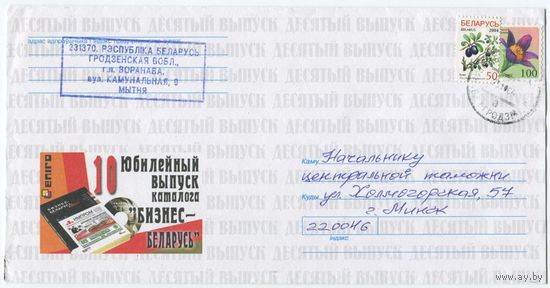 ДЕСЯТЫЙ ВЫПУСК ДЕСЯТЫЙ ВЫПУСК ДЕСЯТЫЙ ВЫПУСК
231370, РЭСПУБЛІКА БЕЛАРУСЬ
ГРОДЗЕНСКАЯ ВОБЛ.,
г.п. ВОРАНАВА,
вул. КАМУНАЛЬНАЯ, 9
МЫТНЯ
БЕЛАРУСЬ
BELARUS 2004
50
100
РОДЗН
10 Юбилейный
выпуск
каталога
"БИЗНЕС–
БЕЛАРУСЬ"
Каму Начальнику
центральной таможни
Куды ул Холмогорская, 57
г. Минск
220046
Індэкс
www.ay.by